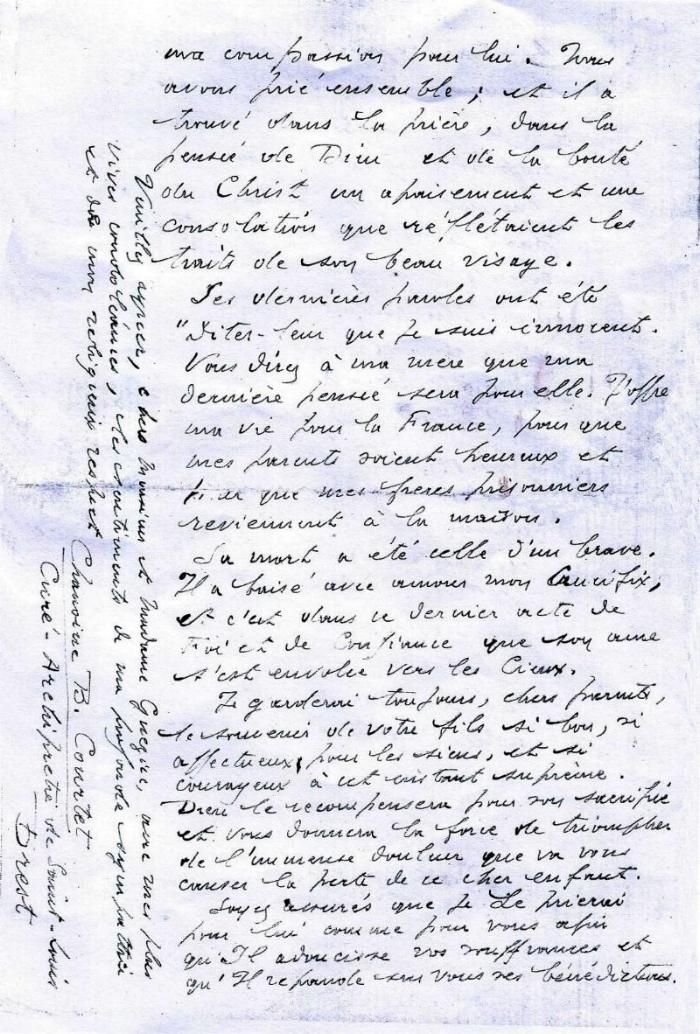 ma compassion pour lui. Nous
avons prié ensemble ; et il a
trouvé dans la prière, dans la
pensée de Dieu et de la bonté
du Christ un apaisement et une
consolation que réflétaient les
traits de son beau visage.
Ses dernières paroles ont été
"Dites-leur que je suis innocent.
Vous direz à ma mère que ma
dernière pensée sera pour elle. J'offre
ma vie pour la France, pour que
mes parents soient heureux et
que mes frères prisonniers
reviennent à la maison.
Sa mort a été celle d'un brave.
Il a baisé avec amour mon Crucifix,
et c'est dans ce dernier acte de
Foi et de Confiance que son âme
s'est envolée vers les Cieux.
Je garderai toujours, chers parents,
le souvenir de votre fils si bon, si
affectueux pour les siens, et si
courageux à cet instant suprême.
Dieu le recompensera pour son sacrifice
et vous donnera la force de triompher
de l'immense douleur que va vous
causer la perte de ce cher enfant.
Soyez assurés que je Le prierai
pour lui comme pour vous afin
qu'Il adoucisse vos souffrances et
qu'Il repande sur vous ses bénédictions.
Veuillez agréer, chers Monsieur et Madame, avec mes plus
vives condoléances, les sentiments de ma profonde sympathie
et de mon religieux respect
Chanoine B. Courtet
Curé-Archiprêtre de Saint-Louis
Brest